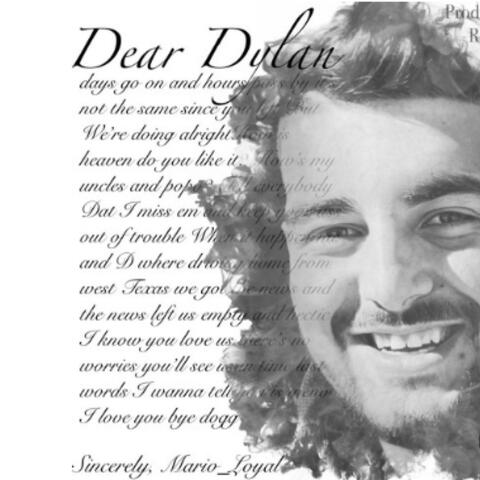 Dear Dylan
Prod
R
days go on and hours pass by it's
not the same since you left But
We're doing alright how is
heaven do you like it How's my
uncles and popa? Tell everybody
Dat I miss em and keep
out of trouble When it happen me
and D where driving home from
west Texas we got the news and
the news left us empty and hectic
I know you love us there's no
worries you'll see us in time last
words I wanna tell you is
I love you bye dogg
Sincerely, Mario_Loyal